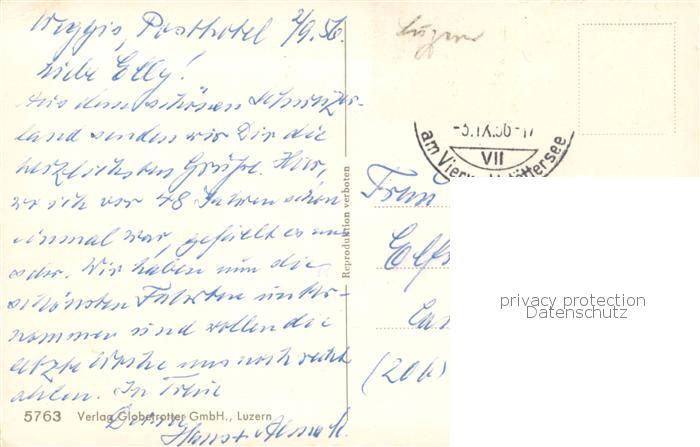 Weggis, Posthotel 2/9.56.
Liebe Elly!
Aus dem schönen Schweizer-
land senden wir Dir die
herzlichsten Grüße. Hier,
wo ich vor 48 Jahren schon
einmal war, gefällt es uns
sehr. Wir haben nun die
schönsten Fahrten unter-
nommen und wollen die
letzte Woche uns noch recht
In Treue
Hans +
5763 Verlag Globetrotter GmbH., Luzern
Reproduktion verboten
Luzern
-3.IX.56-17
VII
am Vierwaldstättersee
Frau
(20b)
privacy protection
Datenschutz